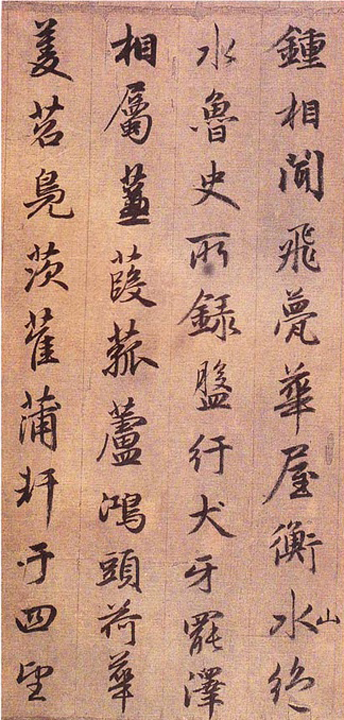 鍾相聞飛甍華屋衡水山絶
水魯史所錄盤行犬牙罷澤
相屬葭菰蘆鴻頭荷華
菱茗鳧茨萑蒲于四望